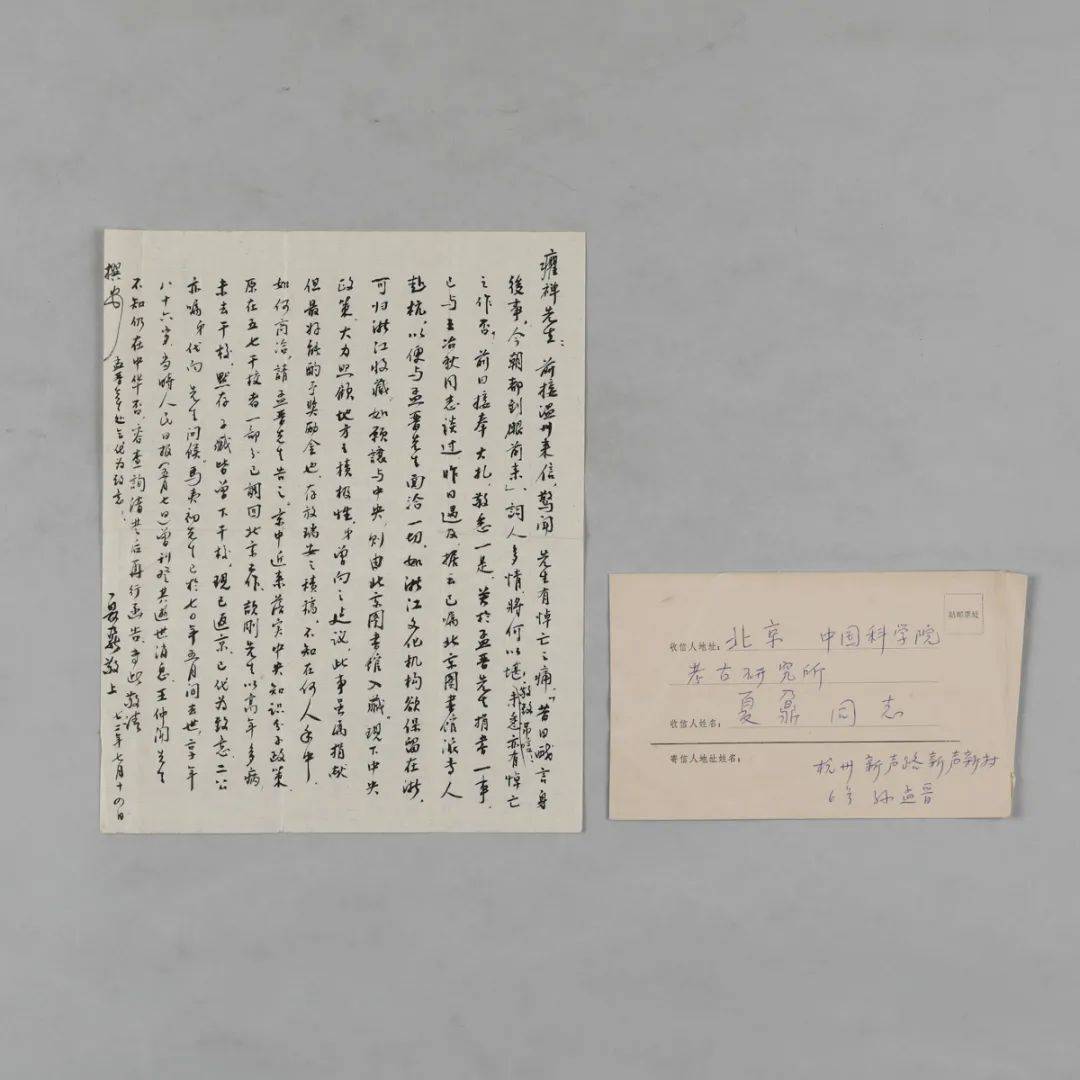 瘫禅先生：前接温州来信，惊闻 先生有悼亡之痛。"昔日戏言身
後事，今朝都到眼前来"，词人多情，将何以堪，敬致吊唁！未悉亦有悼亡
之作否，前日接奉 大札，敬悉一是。关於孟晋先生捐书一事，
已与王冶秋同志谈过，昨日遇及，据云已嘱北京图书馆派专人
赴杭，以便与孟晋先生面洽一切。如浙江文化机构欲保留在浙，
可归浙江收藏，如愿让与中央，则由北京图书馆入藏。现下中央
政策，大力照顾地方之积极性，弟曾向之建议，此事虽为捐献，
但最好能酌予奖励金也。存放瑞安之积稿，不知在何人手中，
如何商洽，请孟晋先生告之。京中近来落实中央知识分子政策，
原在五七干校者一部分已调回北京工作，颉刚先生以高年多病，
未去干校，默存、子臧皆曾下干校，现已返京，已代为致意。二公
亦嘱弟代向 先生问候。马夷初先生已於七〇年五月间去世，享年
八十六岁，当时人民日报（五月七日）曾刊登其逝世消息。王仲闻先生
不知仍在中华否，容查询清楚后再行函告。专此，敬请
撰安
孟晋先生处乞代为致意。
夏鼐敬上 七二年七月十四日
贴邮票处
收信人地址：北京 中国科学院
考古研究所
收信人姓名：夏鼐 同志
寄信人地址姓名：
杭州新声路新声新村
6号 孙孟晋